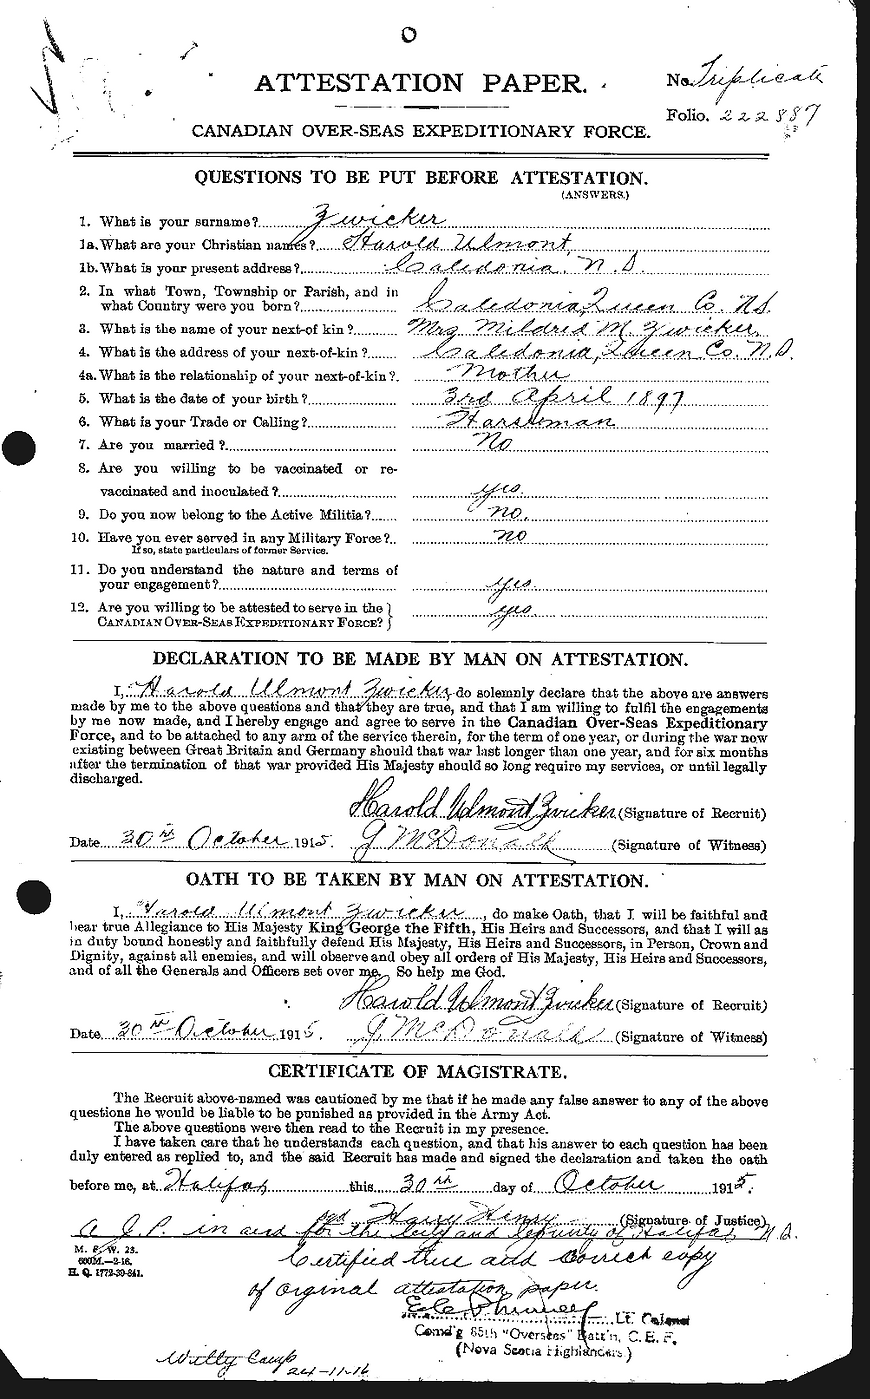 O
ATTESTATION PAPER.
No. Triplicate
Folio. 222887
CANADIAN OVER-SEAS EXPEDITIONARY FORCE.
QUESTIONS TO BE PUT BEFORE ATTESTATION.
(ANSWERS.)
1. What is your surname? Zwicker
1a. What are your Christian names? Harold Ulmont
1b. What is your present address? Caledonia. N.S.
2. In what Town, Township or Parish, and in
what Country were you born? Caledonia, Queen Co. N.S.
3. What is the name of your next-of kin? Mrs Mildred M. Zwicker
4. What is the address of your next-of-kin? Caledonia, Queen Co. N.S.
4a. What is the relationship of your next-of-kin? Mother
5. What is the date of your birth? 3rd April 1897
6. What is your Trade or Calling? Harseman
7. Are you married? No
8. Are you willing to be vaccinated or re-
vaccinated and inoculated? yes.
9. Do you now belong to the Active Militia? no.
10. Have you ever served in any Military Force? no
If so, state particulars of former Service.
11. Do you understand the nature and terms of
your engagement? yes.
12. Are you willing to be attested to serve in the
CANADIAN OVER-SEAS EXPEDITIONARY FORCE? yes.
DECLARATION TO BE MADE BY MAN ON ATTESTATION.
I, Harold Ulmont Zwicker do solemnly declare that the above are answers
made by me to the above questions and that they are true, and that I am willing to fulfil the engagements
by me now made, and I hereby engage and agree to serve in the Canadian Over-Seas Expeditionary
Force, and to be attached to any arm of the service therein, for the term of one year, or during the war now
existing between Great Britain and Germany should that war last longer than one year, and for six months
after the termination of that war provided His Majesty should so long require my services, or until legally
discharged.
Harold Ulmont Zwicker (Signature of Recruit)
Date 30th October 1915. J McDonald (Signature of Witness)
OATH TO BE TAKEN BY MAN ON ATTESTATION.
I, Harold Ulmont Zwicker, do make Oath, that I will be faithful and
bear true Allegiance to His Majesty King George the Fifth, His Heirs and Successors, and that I will as
in duty bound honestly and faithfully defend His Majesty, His Heirs and Successors, in Person, Crown and
Dignity, against all enemies, and will observe and obey all orders of His Majesty, His Heirs and Successors,
and of all the Generals and Officers set over me. So help me God.
Harold Ulmont Zwicker (Signature of Recruit)
Date 30th October 1915. J McDonald (Signature of Witness)
CERTIFICATE OF MAGISTRATE.
The Recruit above-named was cautioned by me that if he made any false answer to any of the above
questions he would be liable to be punished as provided in the Army Act.
The above questions were then read to the Recruit in my presence.
I have taken care that he understands each question, and that his answer to each question has been
duly entered as replied to, and the said Recruit has made and signed the declaration and taken the oath
before me, at Halifax this 30th day of October 1915.
sgd Harry Henry (Signature of Justice)
A J.P. in and for the City and County of Halifax N.S.
M. F. W. 23.
600M.—2-16.
H. Q. 1772-39-841.
Certified true and correct copy
of orginal attestation paper.
Lt. Colonel
Comd'g 85th "Overseas" Batt'n, C. E. F.
(Nova Scotia Highlanders.)
Witley Camp
24-11-16